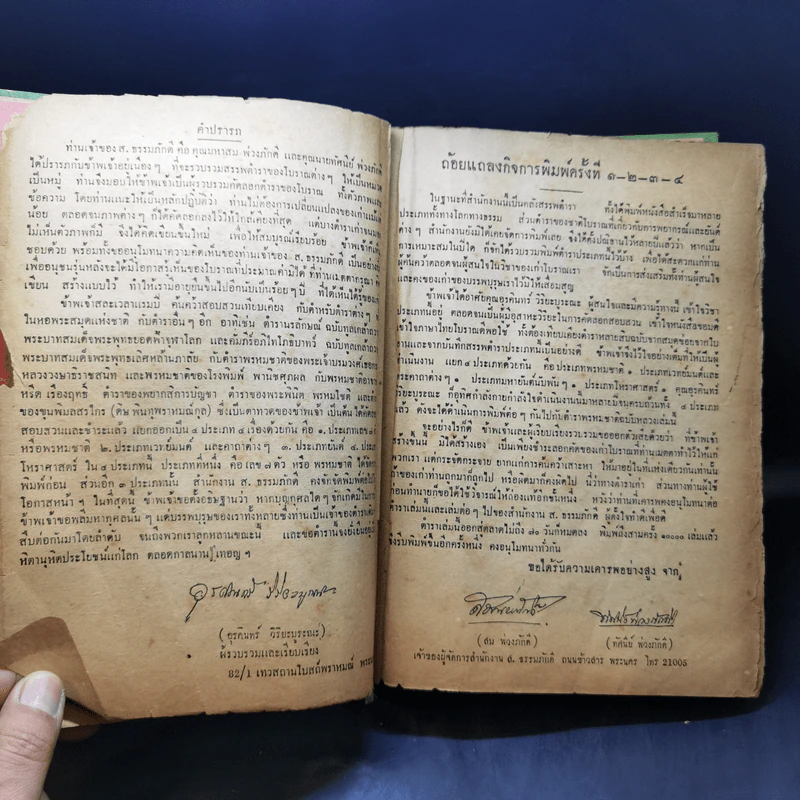 คำปรารภ
ท่านเจ้าของ ส. ธรรมภักดี คือ คุณมหาสม พ่วงภักดี และคุณนายทัศนีย์ พ่วงภักดี
ได้ปรารภกับข้าพเจ้าอยู่เนืองๆ ที่จะรวบรวมสรรพตำราของโบราณต่างๆ ให้เป็นหมวด
เป็นหมู่ ท่านจึงมอบให้ข้าพเจ้าเป็นผู้รวบรวมคัดลอกตำราของโบราณ ทั้งตัวภาพและ
ข้อความ โดยท่านแนะให้เป็นหลักปฏิบัติว่า ท่านไม่ต้องการเปลี่ยนแปลงของเก่าแม้แต่
น้อย ตลอดจนภาพต่างๆ ก็ให้คัดลอกลงไว้ให้ใกล้เคียงที่สุด แต่บางตำราเก่าจน
ไม่เห็นตัวภาพก็มี จึงได้คิดเขียนขึ้นใหม่ เพื่อให้สมบูรณ์เรียบร้อย ข้าพเจ้าก็เห็น
ชอบด้วย พร้อมทั้งขออนุโมทนาความคิดเห็นของท่านเจ้าของ ส. ธรรมภักดี เป็นอย่างยิ่ง
เพื่ออนุชนรุ่นหลังจะได้มีโอกาสรู้เห็นของโบราณที่ประมาณค่ามิได้ ที่ท่านเมตตากรุณา
เขียน สร้างแบบไว้ ทำให้เรามีอายุยืนขึ้นไปอีกนับเป็นร้อยๆ ปี ที่ได้เห็นได้รู้ของ
ข้าพเจ้าสละเวลาแรมปี ค้นคว้าสอบสวนเทียบเคียง กับตำหรับตำราต่างๆ
ในหอพระสมุดแห่งชาติ กับตำราอื่นๆ อีก อาทิเช่น ตำรานรลักษณ์ ฉบับทูลเกล้าถวาย
พระบาทสมเด็จพระพุทธยอดฟ้าจุฬาโลก และคัมภีร์อภิไทโภธิบาทว์ ฉบับทูลเกล้าถวาย
พระบาทสมเด็จพระพุทธเลิศหล้านภาลัย กับตำราพรหมชาติของพระเจ้าบรมวงศ์เธอ
หลวงวงษาธิราชสนิท และพรหมชาติของโรงพิมพ์ พานิชศุภผล กับพรหมชาติอาจารย์
หรีด เรืองฤทธิ์ ตำราของพยากสิการบัญชา ตำราของพระพินิต พรหมโชติ และ
ของขุนพิมลสรไกร (ดิษ พนฑุพราหมณ์กุล) ซึ่งเป็นตาทวดของข้าพเจ้า เป็นต้น ได้คัด
สอบสวนและชำระแล้ว แยกออกเป็น ๔ ประเภท ๔ เรื่องด้วยกัน คือ ๑. ประเภทเลข
หรือพรหมชาติ ๒. ประเภทเวทย์มนต์ และคาถาต่างๆ ๓. ประเภทยันต์ ๔. ประเภท
โหราศาสตร์ ใน ๔ ประเภทนี้ ประเภทที่หนึ่ง คือ เลข ๗ ตัว หรือ พรหมชาติ ได้จัด
พิมพ์ก่อน ส่วนอีก ๓ ประเภทนั้น สำนักงาน ส. ธรรมภักดี คงจักจัดพิมพ์ต่อไปใน
โอกาสหน้า ในที่สุดนี้ ข้าพเจ้าขอตั้งอธิษฐานว่า หากบุญกุศลใดๆ จักเกิดมี
ข้าพเจ้าขอพลีมหากุศลนั้นๆ แด่บรรพบุรุษของเราทั้งหลายซึ่งท่านเป็นเจ้าของตำรา
สืบต่อกันมาโดยลำดับ จนถึงพวกเราลูกหลานขณะนี้ และขอตำรานี้จงยั่งยืนอยู่
หิตานุหิตประโยชน์แก่โลก ตลอดกาลนานๆ เทอญฯ
(อุรคินทร์ วิริยะบูรณะ)
ผู้รวบรวมและเรียบเรียง
82/1 เทวสถานโบสถ์พราหมณ์
ถ้อยแถลงกิจการพิมพ์ครั้งที่ ๑-๒-๓-๔
ในฐานะที่สำนักงานนี้เป็นคลังสรรพตำรา ทั้งได้พิมพ์หนังสือสำเร็จมาหลาย
ประเภททั้งทางโลกทางธรรม ส่วนตำราของชาติโบราณที่เกี่ยวกับการพยากรณ์และยันต์
ต่างๆ สำนักงานยังมิได้เคยจัดการพิมพ์เลย จึงได้ตั้งปณิธานไว้หลายปีแล้วว่า หากเป็น
การเหมาะสมในปีใด ก็จักได้รวบรวมพิมพ์ตำราประเภทนี้ไว้บ้าง เพื่อให้สะดวกแก่ท่าน
ผู้ค้นคว้าตลอดจนผู้สนใจในวิชาของเก่าโบราณเรา จักเป็นการส่งเสริมทั้งท่านผู้สนใจ
และคงของเก่าของบรรพบุรุษเราไว้ให้เสื่อมสูญ
ข้าพเจ้าได้อาศัยคุณอุรคินทร์ วิริยะบูรณะ ผู้สนใจและมีความรู้ทางนี้ เข้าใจวิชา
ประเภทนี้อยู่ ตลอดจนเป็นผู้มีอุตสาหะวิริยะในการคัดลอกสอบสวน เข้าใจหนังสือขอมดี
เข้าใจภาษาไทยโบราณดีพอใช้ ทั้งต้องเทียบเคียงตำราหลายสิบฉบับจากสมุดข่อยจาก
งานและจากบันทึกสรรพตำราประเภทนี้เป็นอย่างดี ข้าพเจ้าจึงไว้ใจอย่างเต็มที่ให้เป็นผู้
ดำเนินงาน แยก ๔ ประเภทด้วยกัน คือ ประเภทพรหมชาติ ๑ ประเภทเวทย์มนต์และ
คาถาต่างๆ ๑ ประเภทมหายันต์นับพันๆ ๑ ประเภทโหราศาสตร์ ๑ คุณอุรคินทร์
วิริยะบูรณะ ก็อุทิศกำลังกายกำลังใจดำเนินงานนี้มาหลายปีจนครบถ้วนทั้ง ๔ ประเภท
แล้ว ดังจะได้ดำเนินการพิมพ์ต่อๆ กันไปกับตำราพรหมชาติฉบับหลวงเล่มนี้
จะอย่างไรก็ดี ข้าพเจ้าและผู้เรียบเรียงรวบรวมขอออกตัวเสียด้วยว่า ที่ข้าพเจ้า
สร้างขึ้นนี้ มิได้สร้างเอง เป็นเพียงชำระลอกคัดของเก่าโบราณที่ท่านเมตตาทำไว้ให้แก่
พวกเรา แต่กระจัดกระจาย ยากแก่การค้นคว้าเสาะหา ให้มาอยู่ในแห่งเดียวกันเท่านั้น
ของเก่าที่ท่านถูกมาก็ถูกไป หรือผิดมาก็คงผิดไป นี่ว่าทางตำราเก่า ส่วนทางท่านผู้ใช้
ก่อนทำนายทักขอได้ใช้วิจารณ์ให้ถ่องแท้อีกชั้นหนึ่ง หวังว่าท่านที่เคารพคงอนุโมทนาต่อ
ตำราเล่มนี้และเล่มต่อๆ ไปของสำนักงาน ส. ธรรมภักดี ผู้ตั้งใจทำดีเพื่อดี
ตำราเล่มนี้ออกสู่ตลาดไม่ถึง ๗๐ วันก็หมดลง พิมพ์ถึงสามครั้ง ๑๐๐๐๐ เล่มแล้ว
จึงรีบพิมพ์ขึ้นอีกครั้งหนึ่ง คงอนุโมทนาทั่วกัน
ขอได้รับความเคารพอย่างสูง จาก
(สม พ่วงภักดี)
(ทัศนีย์ พ่วงภักดี)
เจ้าของผู้จัดการสำนักงาน ส. ธรรมภักดี ถนนข้าวสาร พระนคร โทร 21005